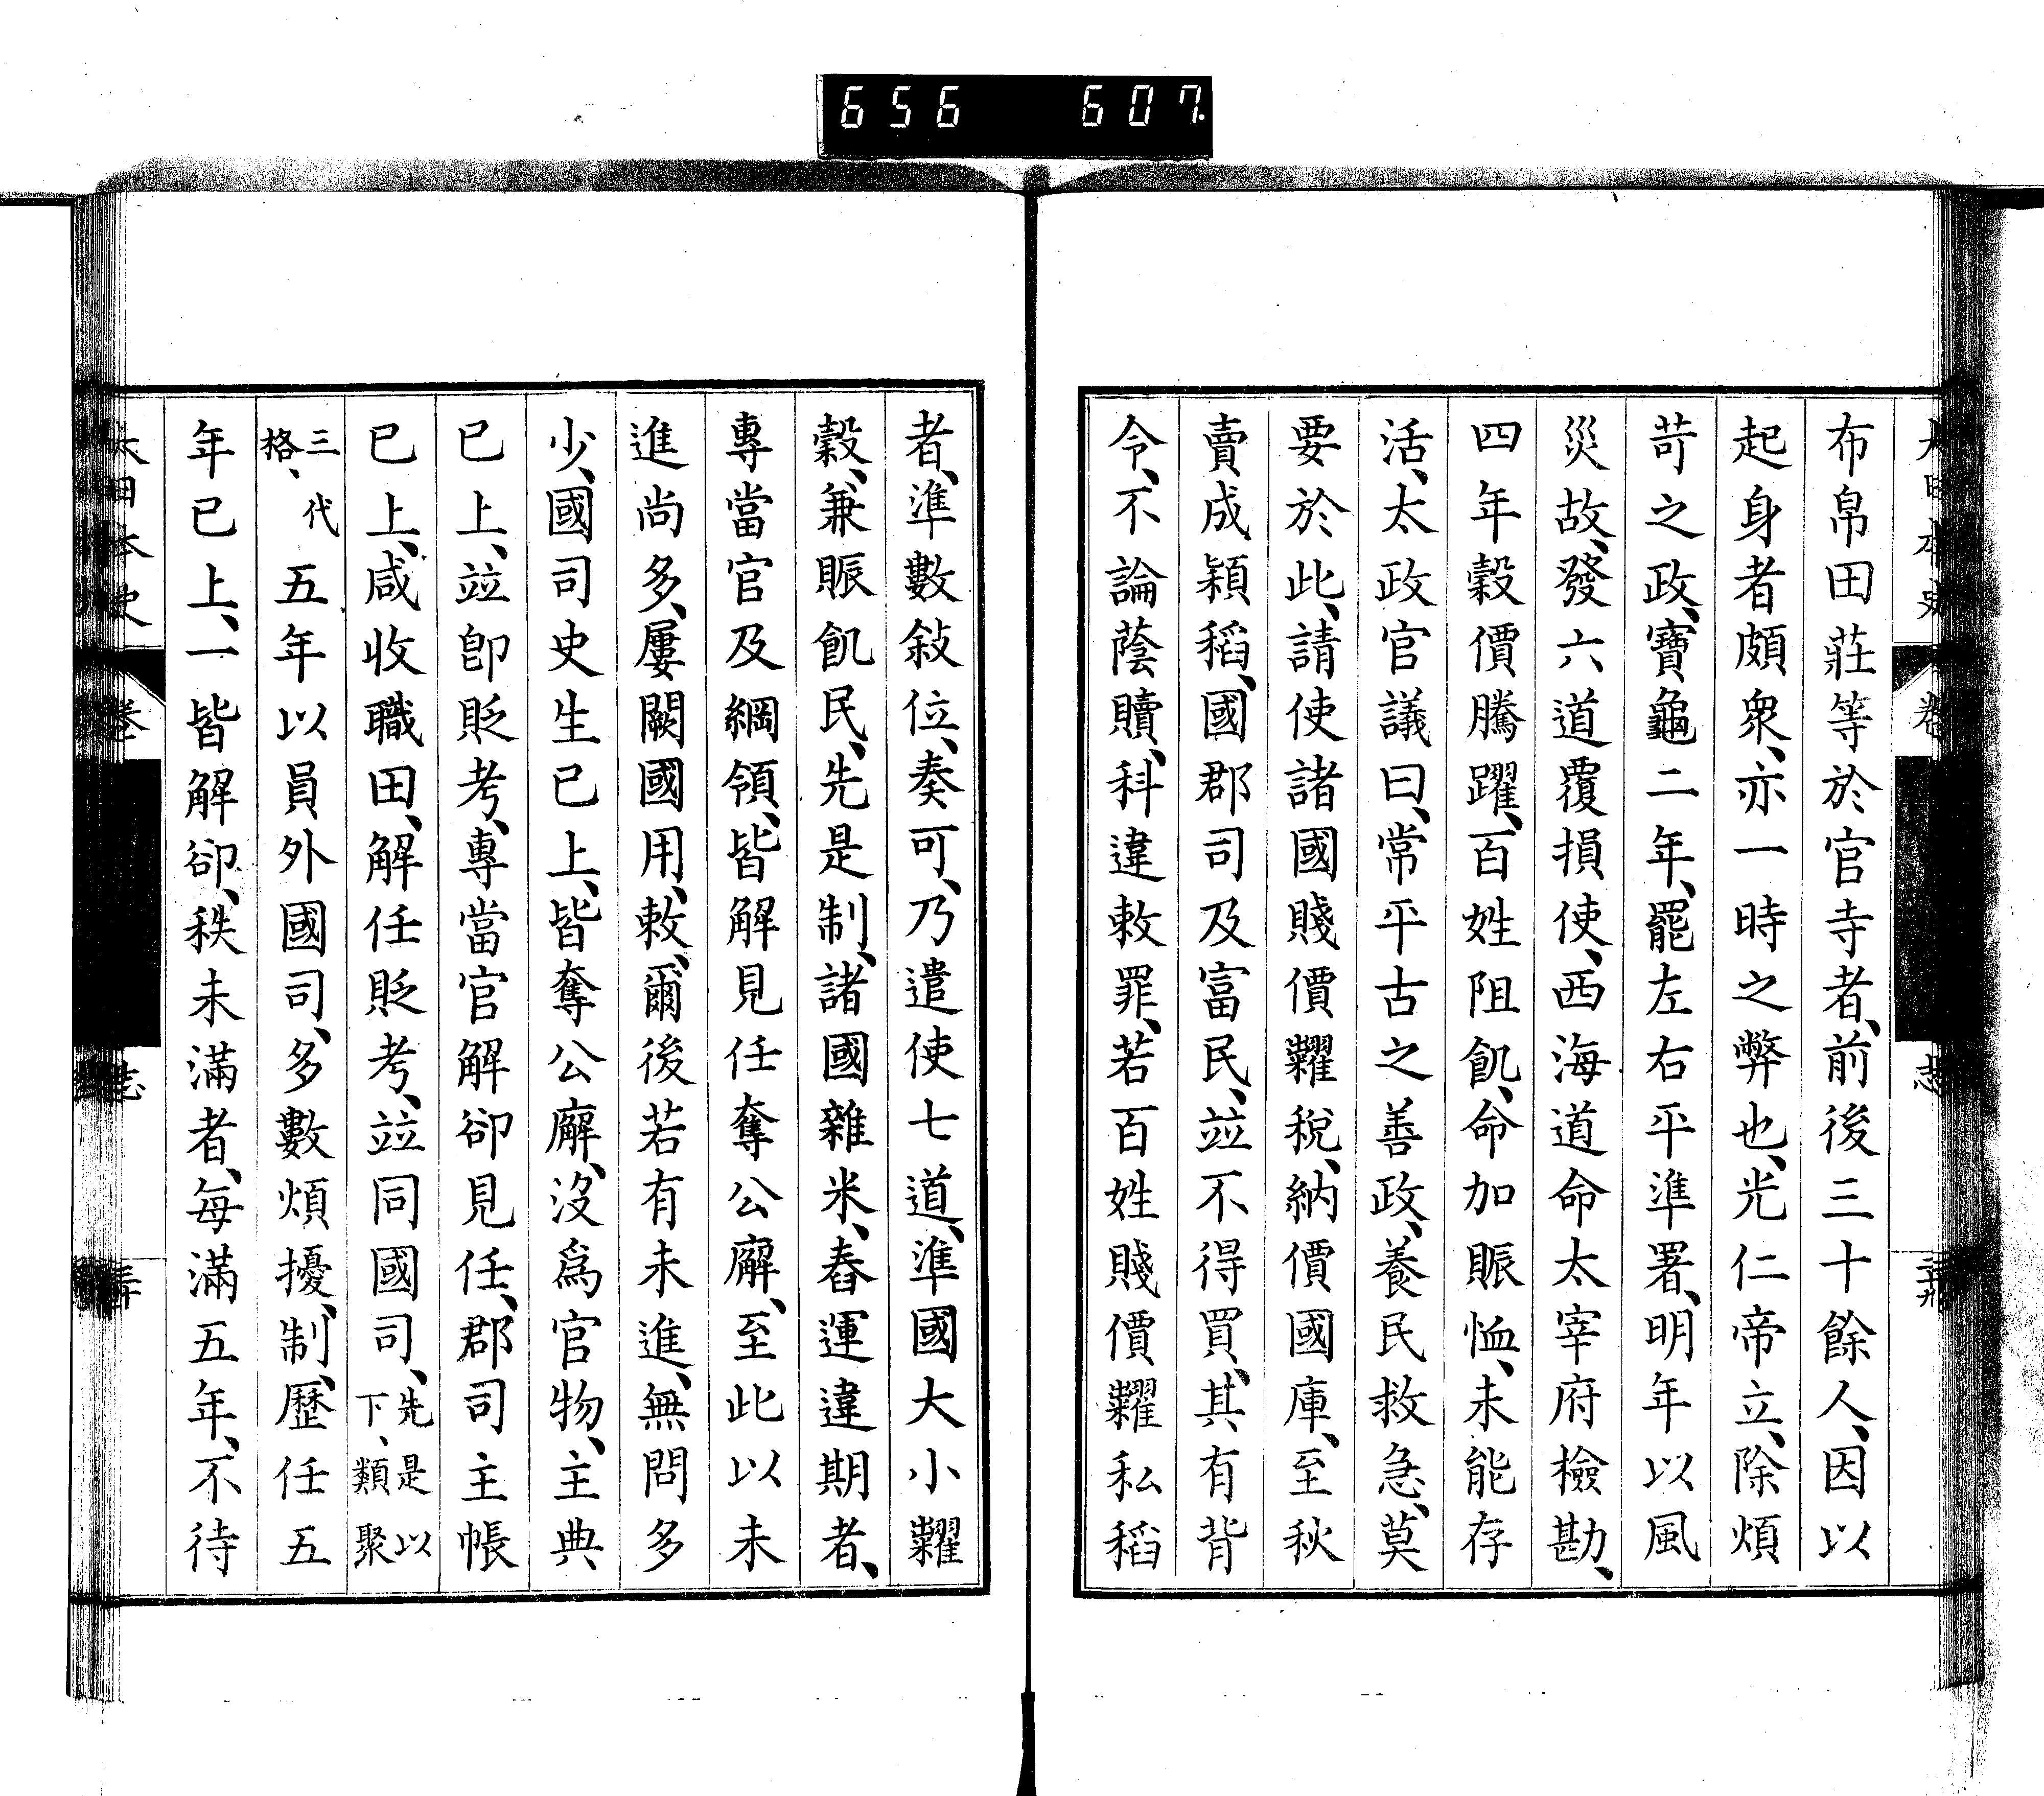 656 607.
大日本史 卷 志
布帛田莊等於官寺者、前後三十餘人、因以
起身者頗衆、亦一時之弊也、光仁帝立、除煩
苛之政、寶龜二年、罷左右平準署、明年以風
災故、發六道覆損使、西海道命太宰府檢勘、
四年穀價騰躍、百姓阻飢、命加賑恤、未能存
活、太政官議曰、常平古之善政、養民救急、莫
要於此、請使諸國賤價糶稅、納價國庫、至秋
賣成穎稻、國郡司及富民、竝不得買、其有背
令、不論蔭贖、科違敕罪、若百姓賤價糶私稻
者、準數敍位、奏可、乃遣使七道、準國大小糶
穀、兼賑飢民、先是制、諸國雜米、舂運違期者、
專當官及綱領、皆解見任奪公廨、至此以未
進尚多、屢闕國用、敕、爾後若有未進、無問多
少、國司史生已上、皆奪公廨、沒爲官物、主典
已上、竝卽貶考、專當官解卻見任、郡司主帳
已上、咸收職田、解任貶考、竝同國司、先是以下、類聚
三代格、五年以員外國司、多數煩擾、制、歷任五
年已上、一皆解卻、秩未滿者、每滿五年、不待
大日本史 卷 志